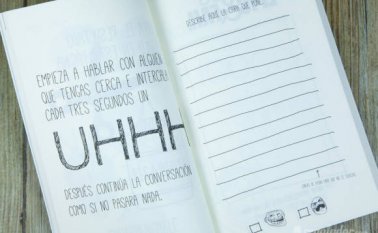 EMPIEZA A HABLAR CON ALGUIEN
QUE TENGAS CERCA E INTERCALA
CADA TRES SEGUNDOS UN
UHHH
DESPUÉS CONTINÚA LA CONVERSACIÓN
COMO SI NO PASARA NADA.
DESCRIBE AQUÍ LA CARA QUE PONE...